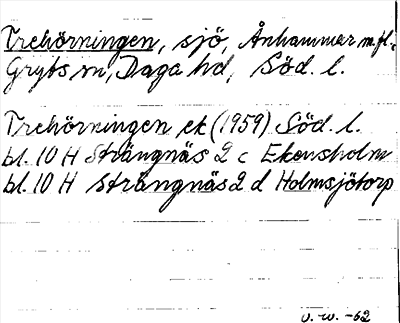 Trehörningen, sjö, Ånhammar m.fl.
Gryts sn, Daga hd, Söd. l.
Trehörningen ek (1959) Söd. l.
bl. 10 H Strängnäs 2 c Ekensholm
bl. 10 H Strängnäs 2 d Holmsjötorp
v. w. -62